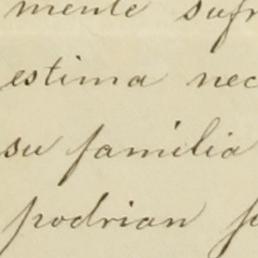 mente sufr
estima nec
su familia
podrian